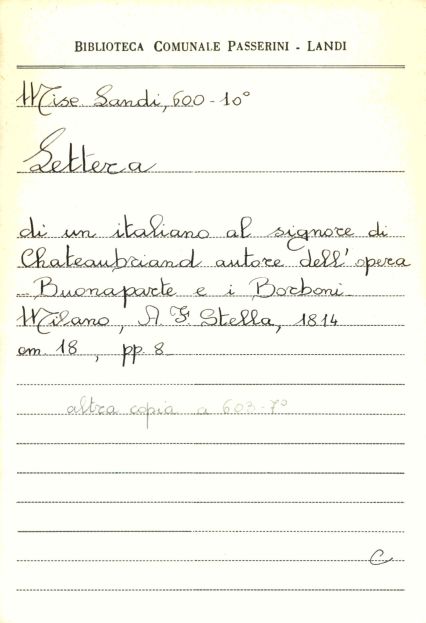 BIBLIOTECA COMUNALE PASSERINI - LANDI
Misc. Landi, 600 - 10°
Lettera
di un italiano al signore di
Chateaubriand autore dell' opera
Buonaparte e i Borboni
Milano, A. F. Stella, 1814
cm. 18, pp. 8
altra copia a 603-7°
C